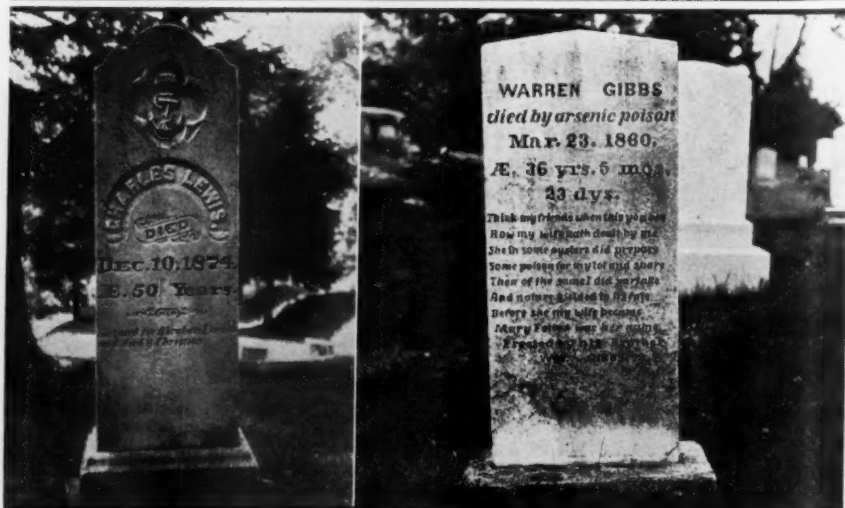 CHARLES LEWIS.
DIED
DEC. 10, 1874.
Æ. 50 Years.
and died a Christian
WARREN GIBBS
died by arsenic poison
Mar. 23. 1860.
Æ. 36 yrs. 5 mos.
23 dys.
Think my friends when this you see
How my wife hath dealt by me
She in some oysters did prepare
Some poison for my lot and share
Then of the same I did partake
And nature yielded to its fate
Before she my wife became
Mary Felton was her name
Erected by his Brother